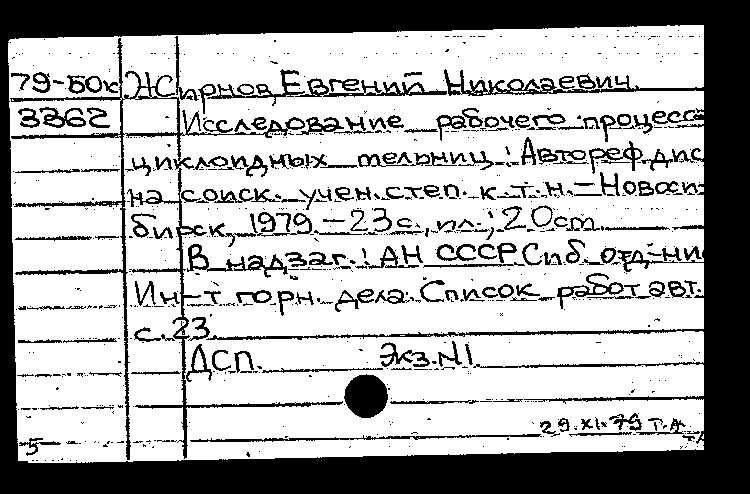 79-БОк Жирнов, Евгений Николаевич.
3362 Исследование рабочего процесса
циклоидных мельниц : Автореф. дис
на соиск. учен. степ. к. т. н. - Новоси-
бирск, 1979. - 23 с., ил.; 20 см
В надзаг.: АН СССР Сиб. отд-ние
Ин-т горн. дела. Список работ авт.
с. 23
ДСП. Экз. №1
29.XI.79 Т.А
5